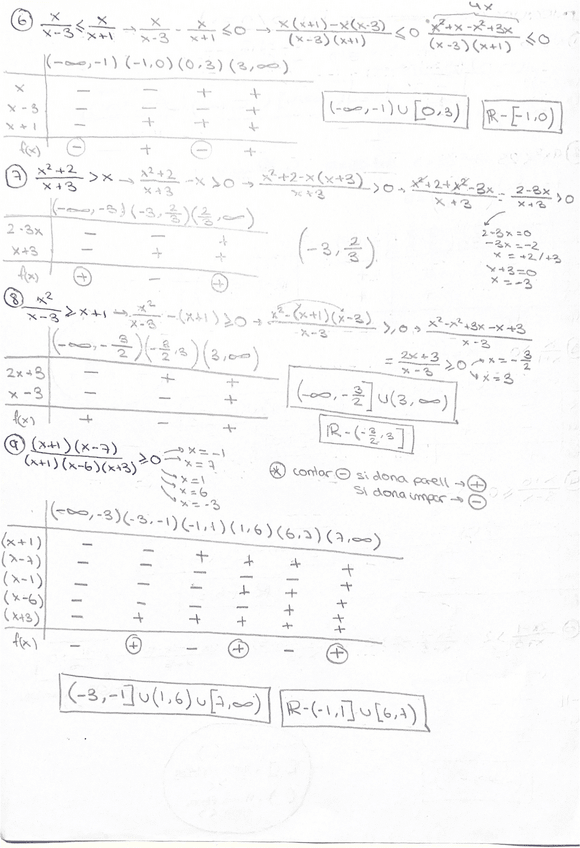 4x
⑥ x/(x-3) ≤ x/(x+1) → x/(x-3) - x/(x+1) ≤ 0 → (x(x+1)-x(x-3))/((x-3)(x+1)) ≤ 0 (x²+x-x²+3x)/((x-3)(x+1)) ≤ 0
(-∞,-1) (-1,0) (0,3) (3,∞)
x - - + +
x-3 - - - +
x+1 - + + +
f(x) ⊖ + ⊖ +
(-∞,-1) ∪ [0,3)
ℝ-[-1,0)
⑦ (x²+2)/(x+3) > x → (x²+2)/(x+3) - x ≥ 0 → (x²+2-x(x+3))/(x+3) > 0 → (x²+2+x²-3x)/(x+3) = (2-3x)/(x+3) > 0
(-∞,-3) (-3,2/3) (2/3,∞)
2-3x - - +
x+3 - + +
f(x) ⊕ - ⊕
(-3, 2/3)
2-3x=0
-3x=-2
x=+2/+3
x+3=0
x=-3
⑧ x²/(x-3) ≥ x+1 → x²/(x-3) - (x+1) ≥ 0 → (x²-(x+1)(x-3))/(x-3) ≥ 0 → (x²-x²+3x-x+3)/(x-3)
= (2x+3)/(x-3) ≥ 0 x=-3/2
x=3
(-∞,-3/2) (-3/2,3) (3,∞)
2x+3 - + +
x-3 - - +
f(x) + - +
(-∞,-3/2] ∪ (3,∞)
ℝ-(-3/2,3]
⑨ ((x+1)(x-7))/((x+1)(x-6)(x+3)) ≥ 0 x=-1
x=7
x=1
x=6
x=-3
⊛ contar ⊖ si dona parell → ⊕
si dona impar → ⊖
(-∞,-3) (-3,-1) (-1,1) (1,6) (6,7) (7,∞)
(x+1) - - + + + +
(x-7) - - - - - +
(x-1) - - - + + +
(x-6) - - - - + +
(x+3) - + + + + +
f(x) - ⊕ - ⊕ - ⊕
(-3,-1] ∪ (1,6) ∪ [7,∞)
ℝ-(-1,1] ∪ [6,7)